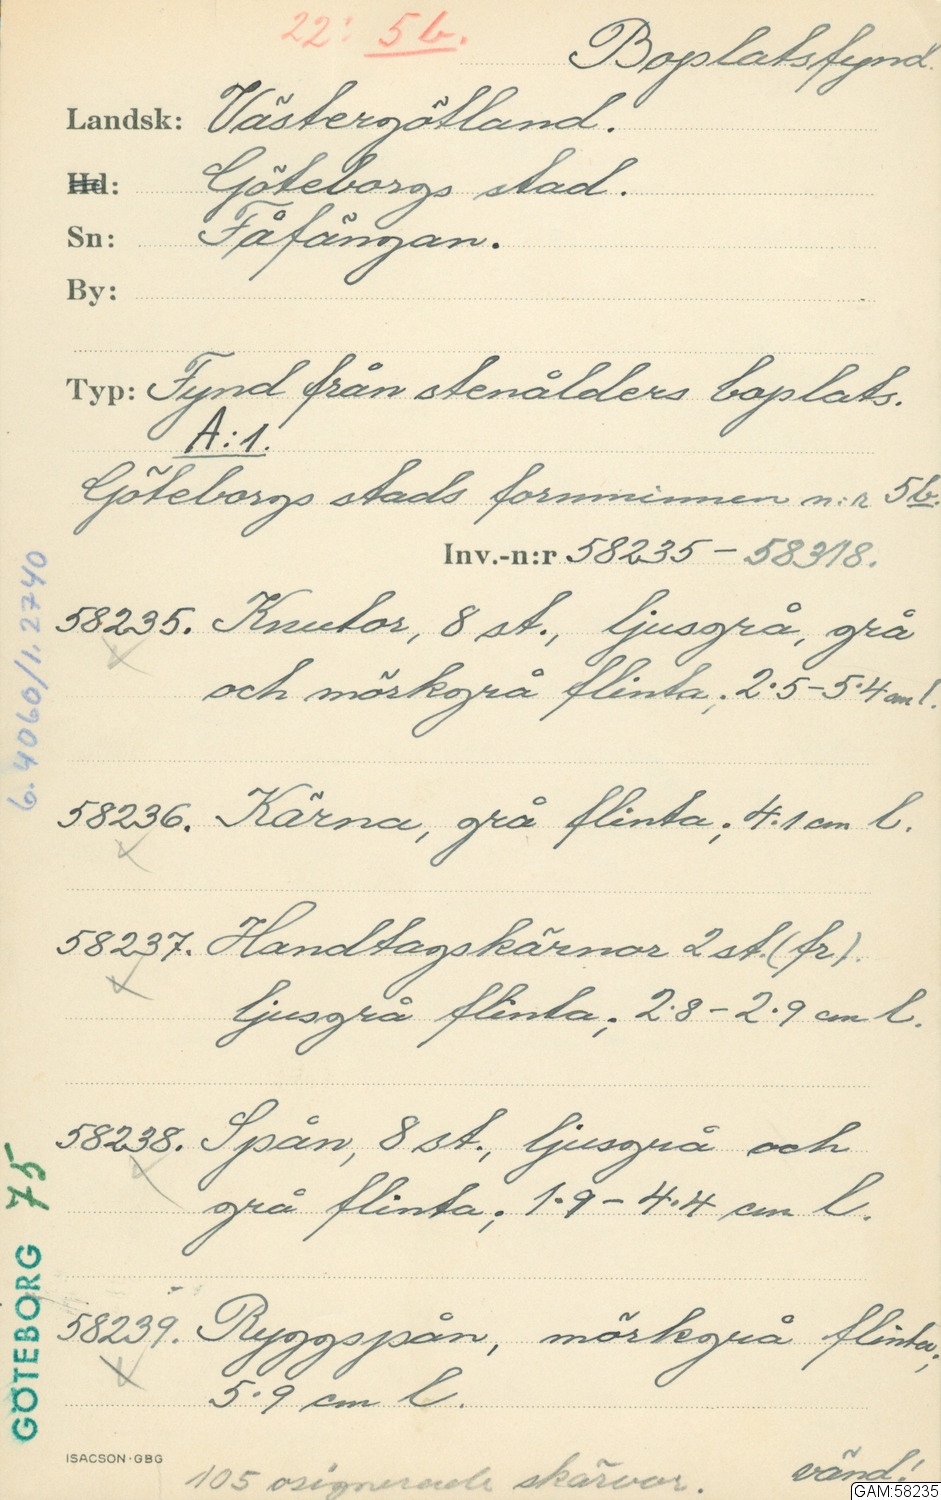 22: 5 b.
Boplatsfynd.
Landsk: Västergötland.
Hd: Göteborgs stad.
Sn: Fåfängan.
By:
Typ: Fynd från stenålders boplats.
A:1.
Göteborgs stads fornminnen n:r 5b.
Inv.-n:r 58235 – 58318.
58235. Knutor, 8 st., ljusgrå, grå
och mörkgrå flinta; 2·5–5·4 cm l.
58236. Kärna, grå flinta; 4·1 cm l.
58237. Handtagskärnor 2 st. (fr).
ljusgrå flinta; 2·8 – 2·9 cm l.
58238. Spån, 8 st., ljusgrå och
grå flinta; 1·9 – 4·4 cm l.
58239. Ryggspån, mörkgrå flinta;
5·9 cm l.
ISACSON·GBG
105 osignerade skärvor.
vänd!
6.4060/1.2740
GÖTEBORG 75
GAM:58235